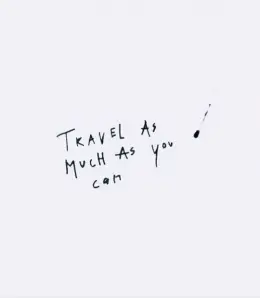 TRAVEL AS
MUCH AS YOU
can !